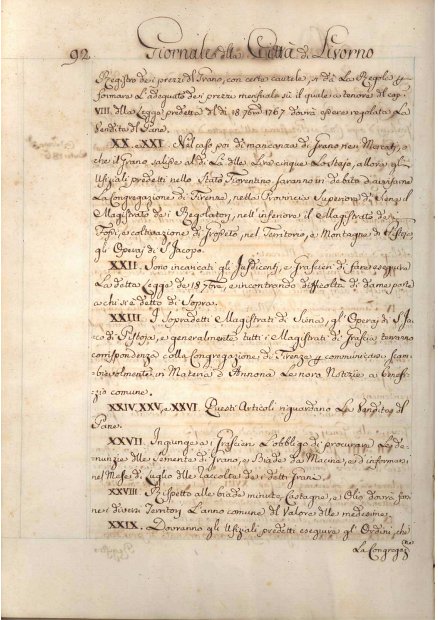 92 Giornale della Città di Livorno
Registro dei prezzi di Grano, con certe cautele, si dà La Regola p
formare L'adeguato dei prezzi mensuale sù il quale a tenore del cap
VIII. della Legge predetta del dì 18. 7bre 1767 dovrà essere regolata La
Vendita del Pane.
XX. e XXI. Nel caso poi di mancanza di Grano nei Mercati, o
che il Grano salisse al di Là delle Lire cinque Lo stajo, allora gl'
Ufiziali predetti nello Stato Fiorentino saranno in debito d'avvisarne
La Congregazione di Firenze, nella Provincia Superiore di Siena il
Magistrato dei Regolatori, nell'inferiore il Magistrato dei
Fossi, e coltivazione di Grosseto, nel Territorio, e Montagne di Pistoja
gli Operaj di S. Jacopo.
XXII. Sono incaricati gli Jusdicenti, e Grascieri di fare eseguire
La detta Legge de' 18. 7bre, e incontrando difficoltà di darne parte
a chi si è detto di Sopra.
XXIII. I Sopradetti Magistrati di Siena, gl' Operaj di S. Ja
co di Pistoja, e generalmente tutti i Magistrati di Grascia terranno
corrispondenza colla Congregazione di Firenze p communicarsi scam
bievolmente in Materia d'Annona Le nove Notizie a benefi
zio comune.
XXIV, XXV, e XXVI. Questi Articoli riguardano La Vendita del
Pane.
XXVII. Ingiunge ai Grascieri L'obbligo di procurare Le de
nunzie delle Semente di Grano, e Biade da Macina, e d'informare
nel Mese di Luglio delle raccolte dei detti Grani.
XXVIII Rispetto alle biade minute, Castagne, e Olio dovrà farsi
nei diversi Territorj L'anno comune del Valore delle medesime.
XXIX. Dovranno gli Ufiziali predetti eseguire gl' Ordini, che
La Congregaz.ne